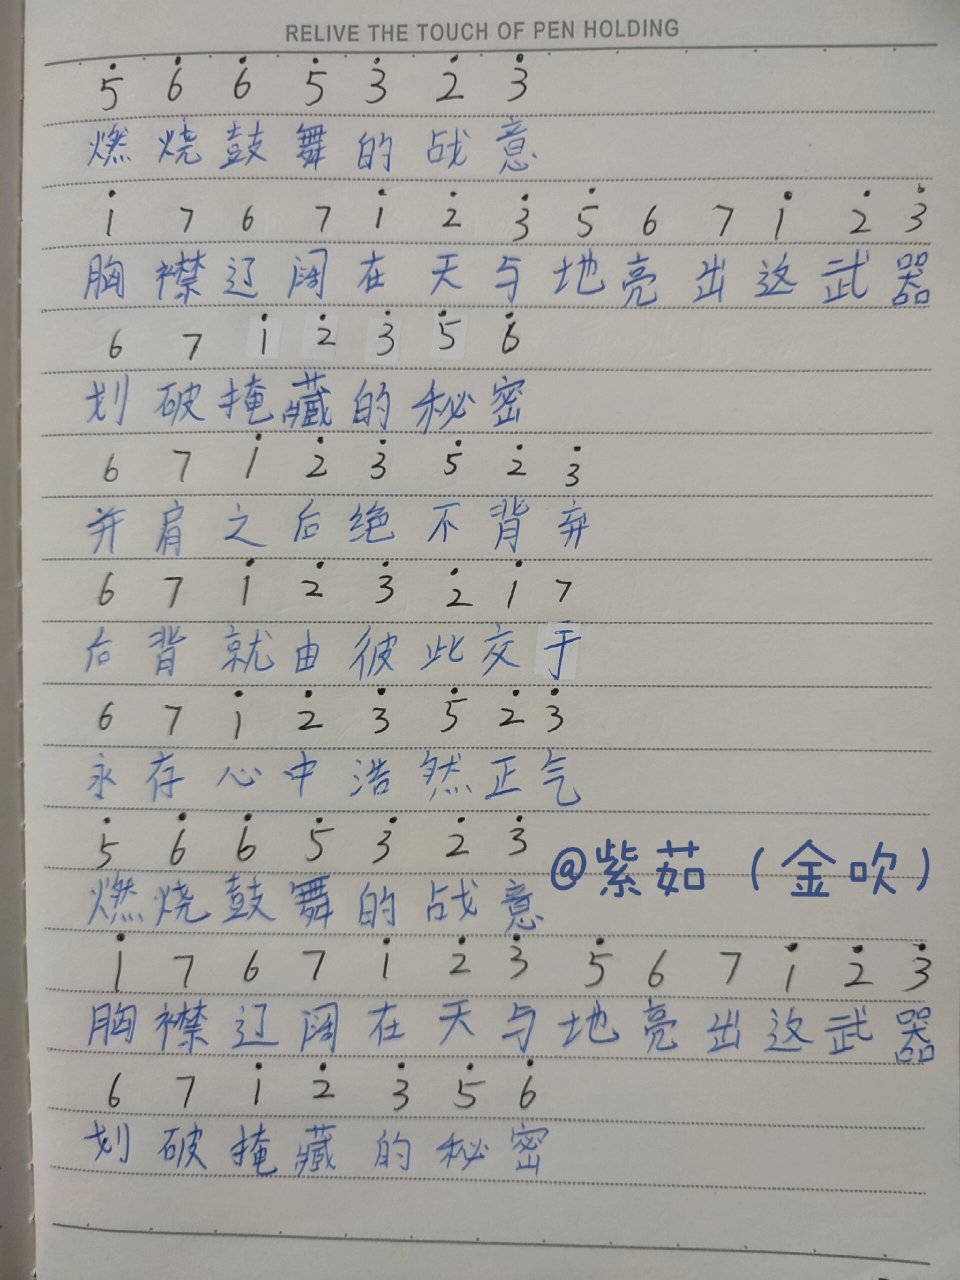 RELIVE THE TOUCH OF PEN HOLDING
5̇ 6̇ 6̇ 5̇ 3̇ 2̇ 3̇
燃烧鼓舞的战意
1̇ 7 6 7 1̇ 2̇ 3̇ 5̇ 6 7 1̇ 2̇ 3̇
胸襟辽阔在天与地亮出这武器
6 7 1̇ 2̇ 3̇ 5̇ 6̇
划破掩藏的秘密
6 7 1̇ 2̇ 3̇ 5̇ 2̇ 3̇
并肩之后绝不背弃
6 7 1̇ 2̇ 3̇ 2̇ 1̇ 7
后背就由彼此交于
6 7 1̇ 2̇ 3̇ 5̇ 2̇ 3̇
永存心中浩然正气
5̇ 6̇ 6̇ 5̇ 3̇ 2̇ 3̇
@紫茹（金吹）
燃烧鼓舞的战意
1̇ 7 6 7 1̇ 2̇ 3̇ 5̇ 6 7 1̇ 2̇ 3̇
胸襟辽阔在天与地亮出这武器
6 7 1̇ 2̇ 3̇ 5̇ 6̇
划破掩藏的秘密